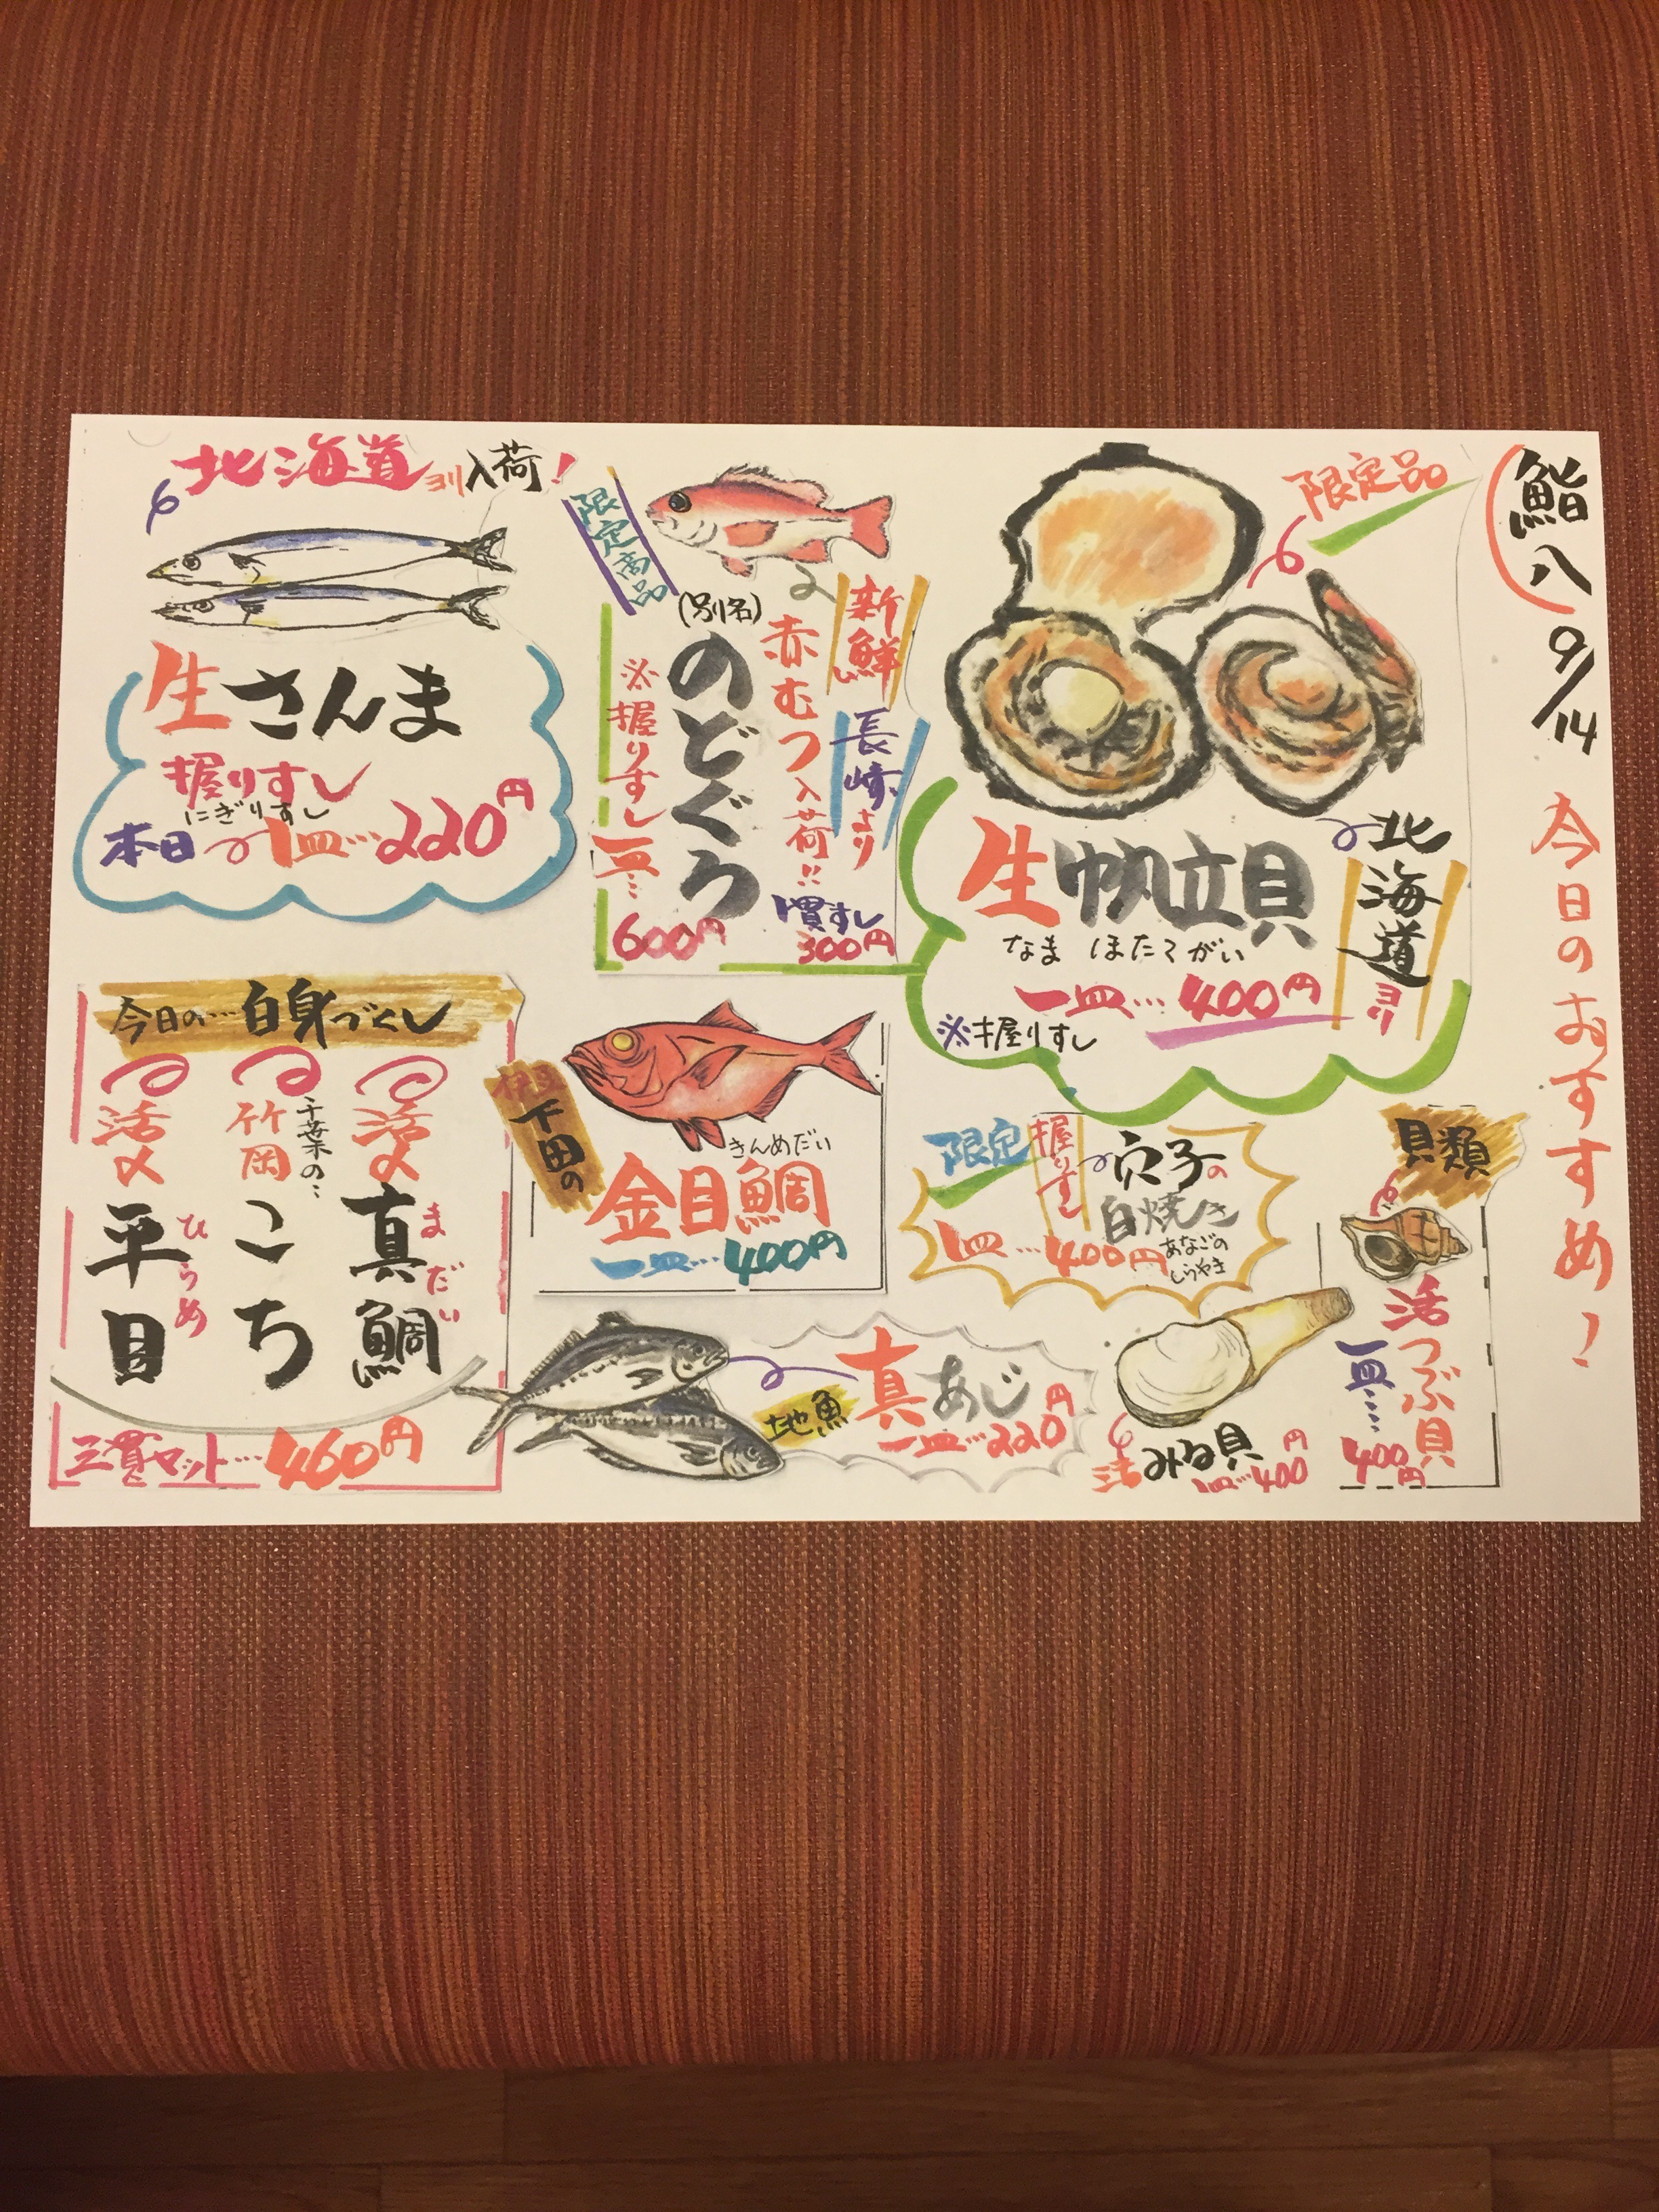 鮨八 9/14 今日のおすすめ!
限定品
北海道ヨリ
生帆立貝
なま ほたてがい
一皿…400円
※握りすし
限定商品
新鮮
長崎より
赤むつ入荷!!
(別名)
のどぐろ
※握りすし
一皿…
600円
一貫すし
300円
北海道ヨリ入荷!
生さんま
握りすし
にぎりすし
本日 一皿…220円
貝類
活つぶ貝
一皿……
400円
活みる貝
一皿…400円
限定
握りすし
穴子の
白焼き
あなごの
しらやき
一皿…400円
伊豆下田の
きんめだい
金目鯛
一皿…400円
地魚
真あじ
一皿…220円
今日の…白身づくし
活〆
真鯛
まだい
千葉の…
竹岡
こち
活〆
平目
ひらめ
三貫セット…460円